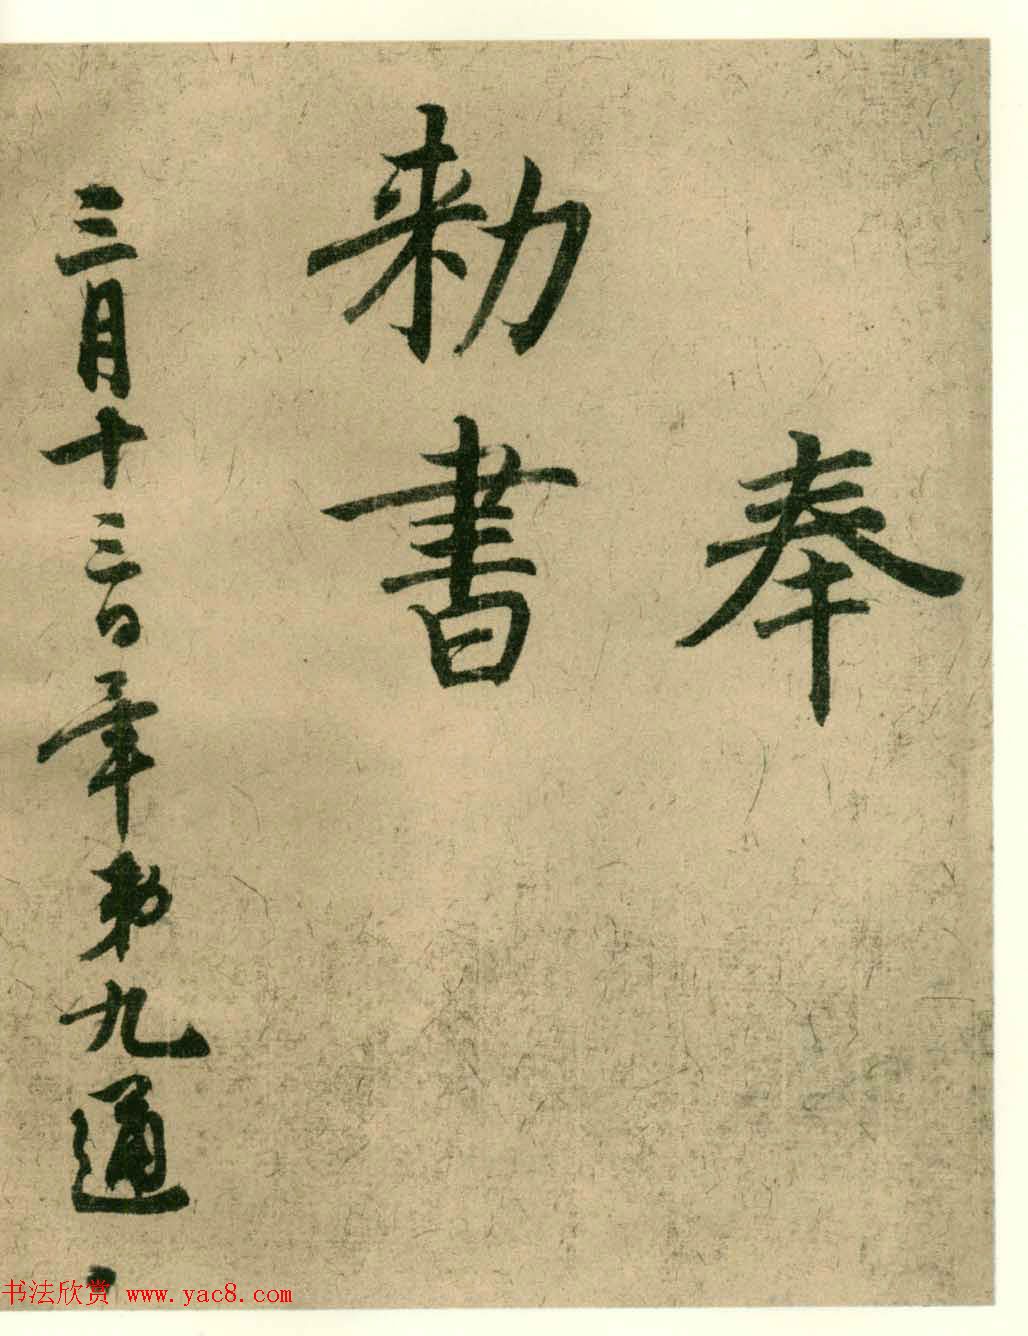 奉
勑書
三月十三日勑九通
书法欣赏 www.yac8.com